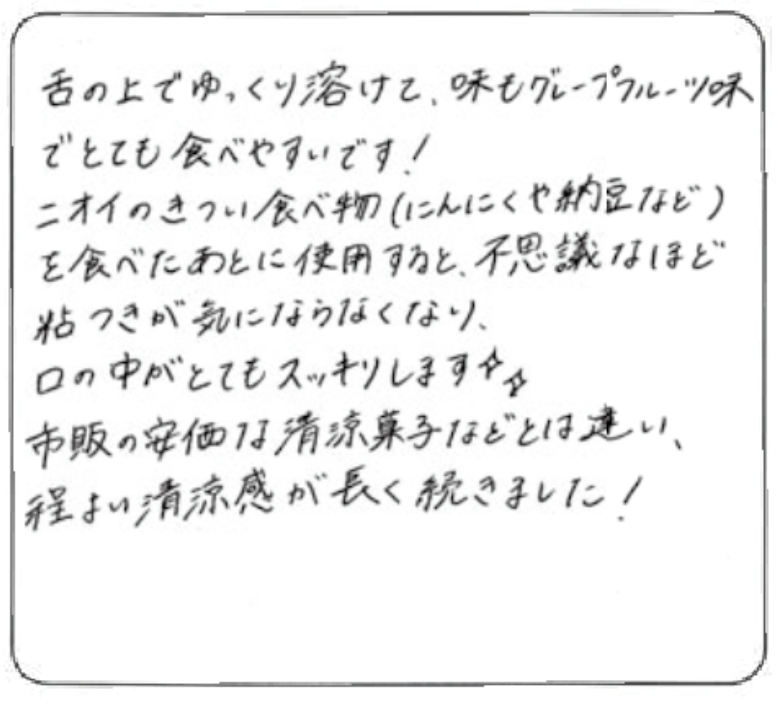 舌の上でゆっくり溶けて、味もグレープフルーツ味
でとても食べやすいです!
ニオイのきつい食べ物(にんにくや納豆など)
を食べたあとに使用すると、不思議なほど
粘つきが気にならなくなり、
口の中がとてもスッキリします✧✧
市販の安価な清涼菓子などとは違い、
程よい清涼感が長く続きました!